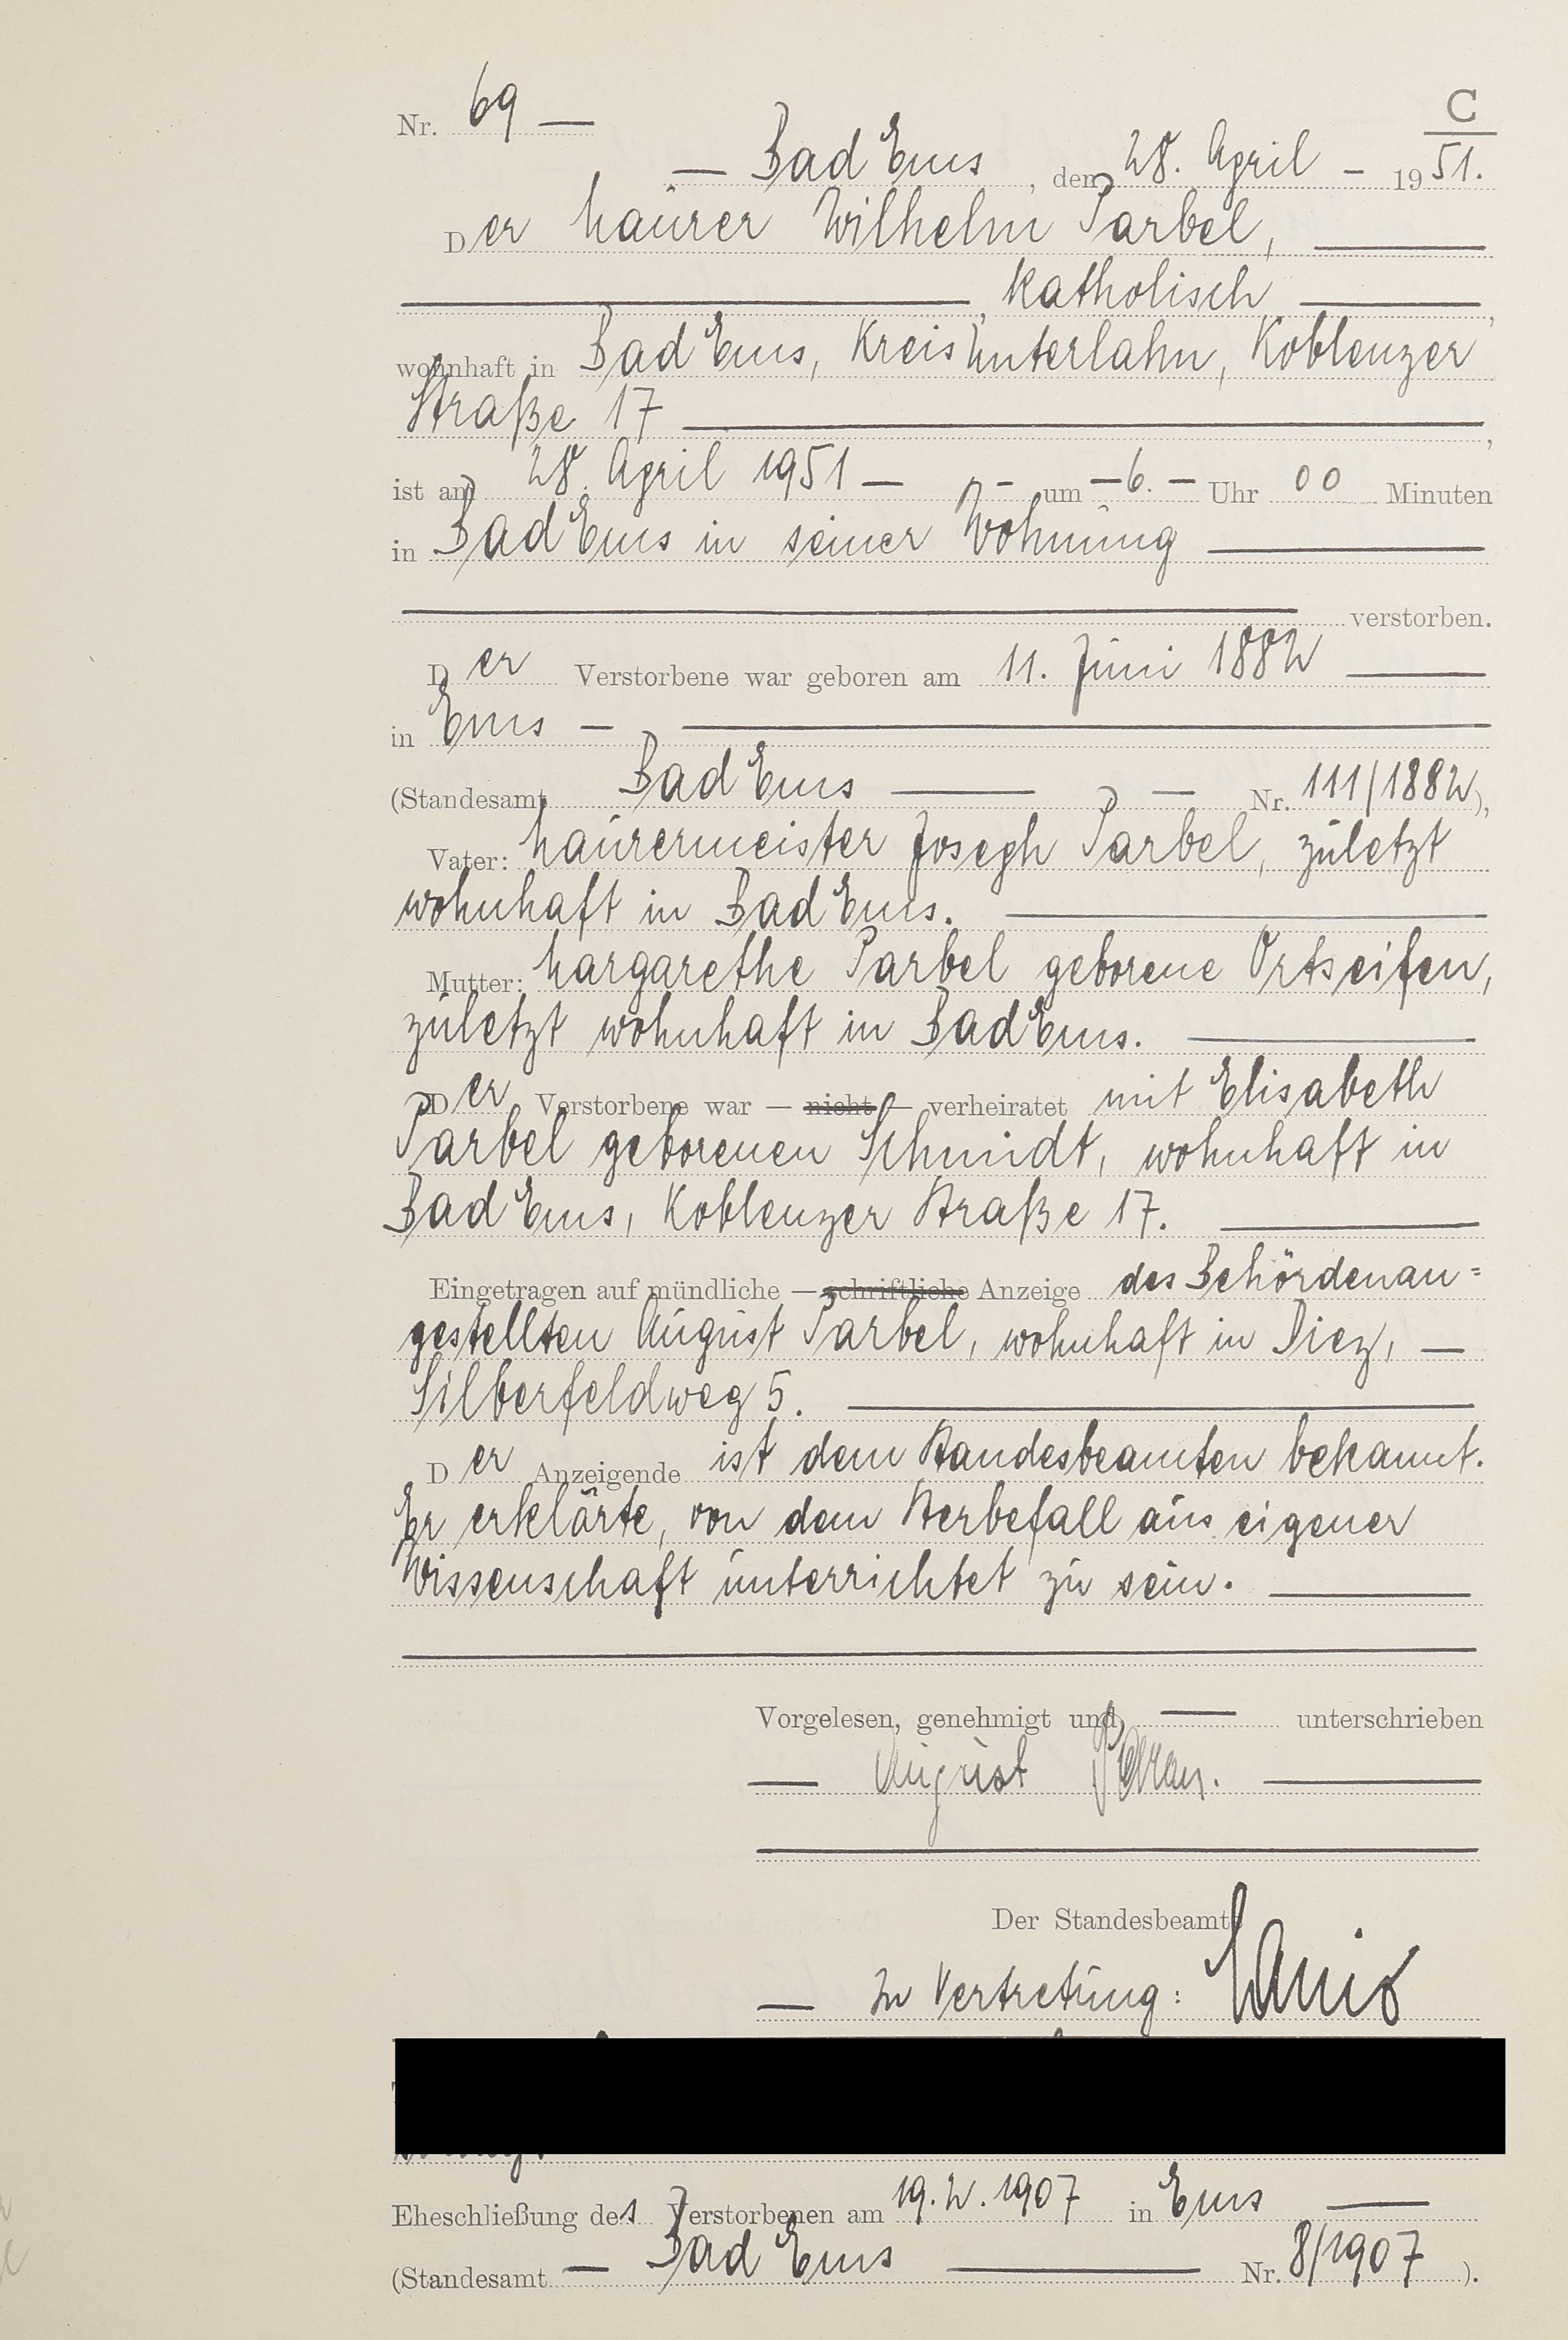 C
Nr. 69 —
— Bad Ems, den 28. April – 1951.
Der Maurer Wilhelm Parbel, —
—, katholisch —,
wohnhaft in Bad Ems, Kreis Unterlahn, Koblenzer
Straße 17 —,
ist am 28. April 1951 — – um – 6. – Uhr 00 Minuten
in Bad Ems in seiner Wohnung —
— verstorben.
Der Verstorbene war geboren am 11. Juni 1882 —
in Ems — —
(Standesamt Bad Ems — — Nr. 111/1882),
Vater: Maurermeister Joseph Parbel, zuletzt
wohnhaft in Bad Ems. —
Mutter: Margarethe Parbel geborene Ortseifen,
zuletzt wohnhaft in Bad Ems. —
Der Verstorbene war — nicht — verheiratet mit Elisabeth
Parbel geborenen Schmidt, wohnhaft in
Bad Ems, Koblenzer Straße 17. —
Eingetragen auf mündliche — schriftliche Anzeige des Behördenan=
gestellten August Parbel, wohnhaft in Diez, —
Silberfeldweg 5. —
Der Anzeigende ist dem Standesbeamten bekannt.
Er erklärte, von dem Sterbefall aus eigener
Wissenschaft unterrichtet zu sein. —
Vorgelesen, genehmigt und — unterschrieben
— August —
Der Standesbeamte
— In Vertretung:
Eheschließung des Verstorbenen am 19.2.1907 in Ems —
(Standesamt — Bad Ems — Nr. 8/1907).